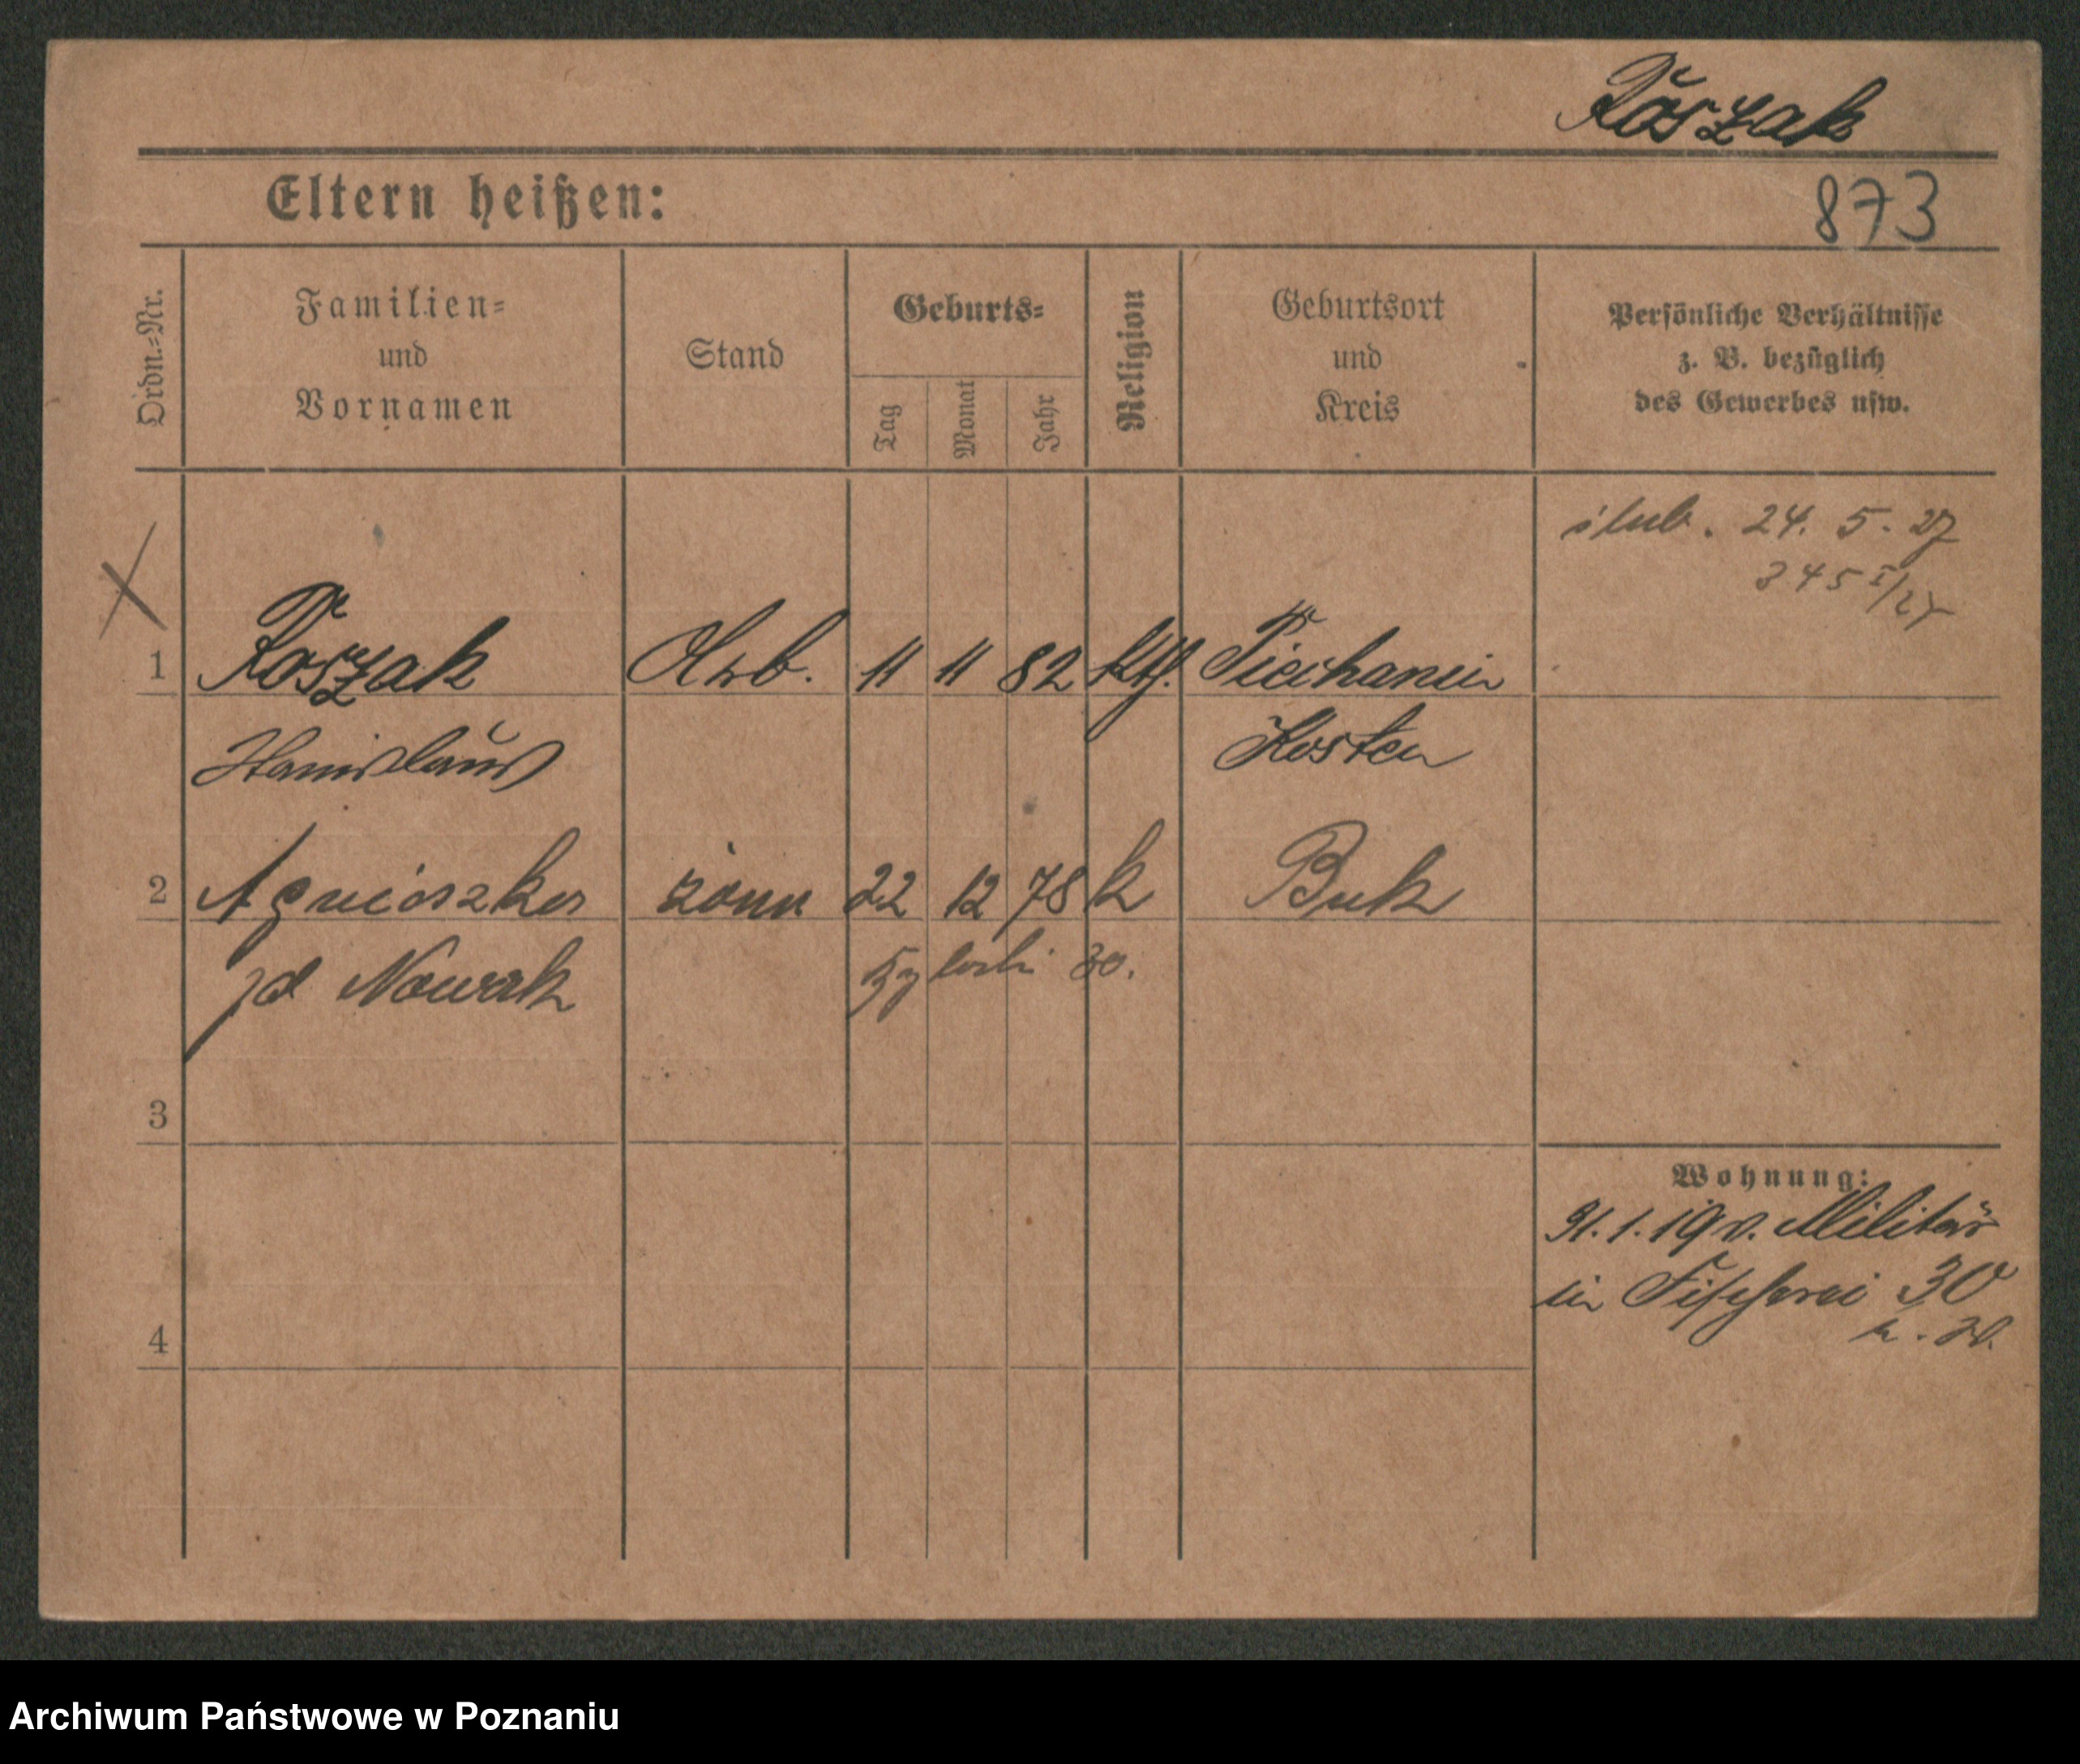 Koszak
Eltern heißen:
873
Ordn.-Nr.
Familien-
und
Vornamen
Stand
Geburts-
Tag
Monat
Jahr
Religion
Geburtsort
und
Kreis
Persönliche Verhältnisse
z. B. bezüglich
des Gewerbes usw.
ślub. 24. 5. 27
345 I/27
1 Koszak Arb. 11 11 82 kth.
Stanislaus Kosten
2 Agnieszka żona 22 12 78 k Buk
zd Nowak 30.
3
Wohnung:
31.1.19 v. Militär
in Fischerei 30
4
Archiwum Państwowe w Poznaniu